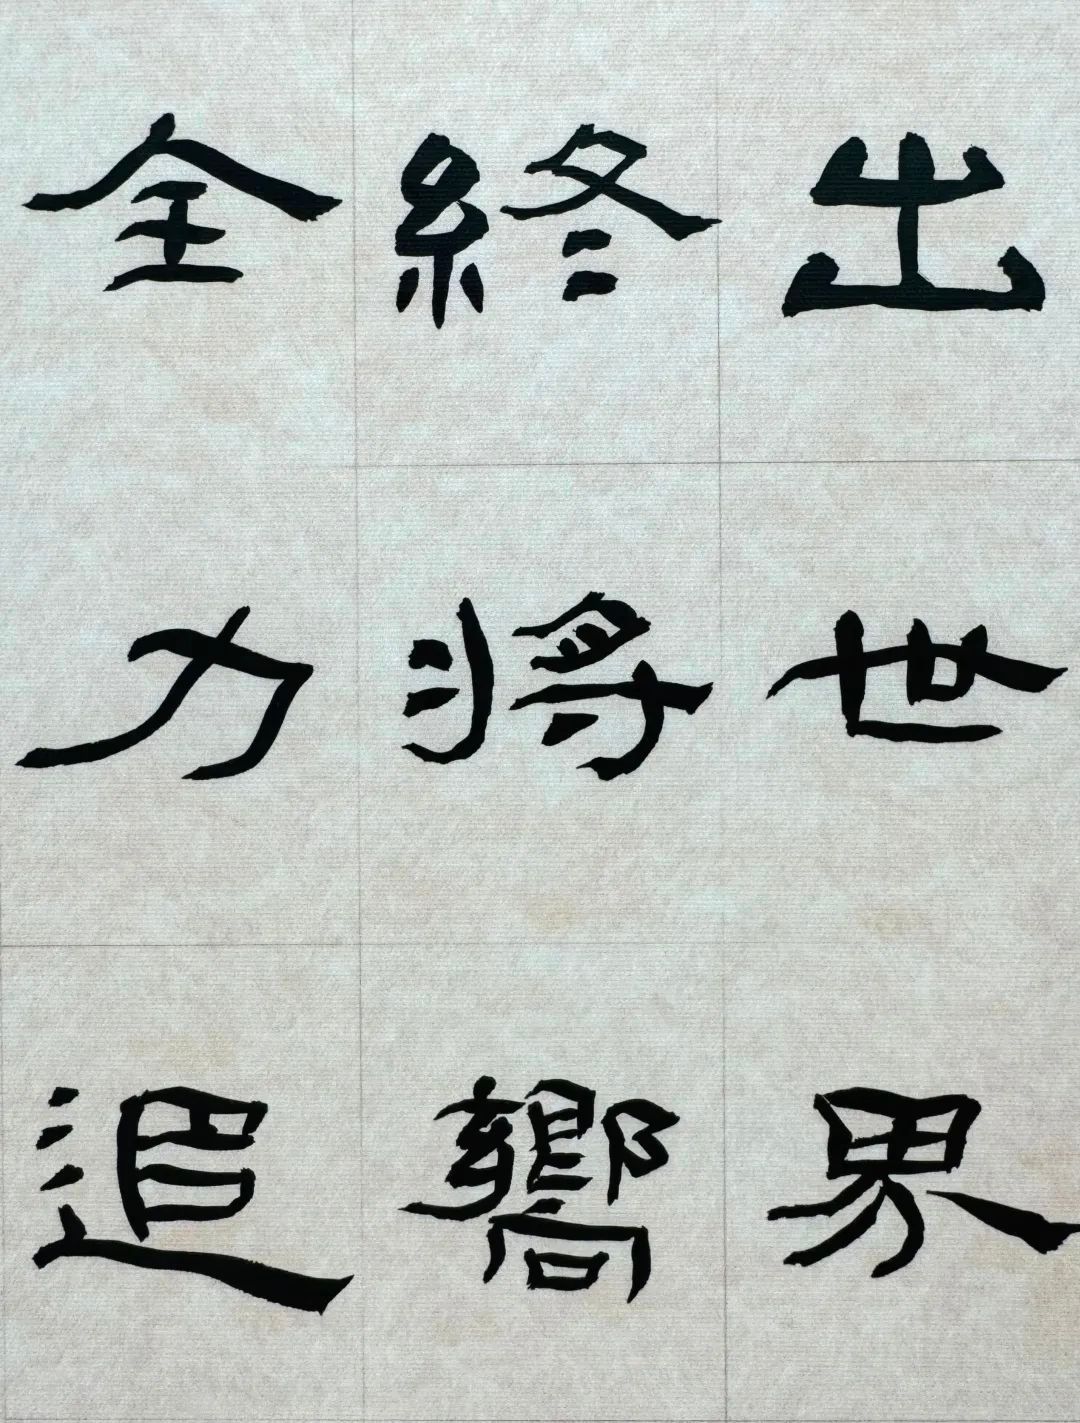 出世界
終將嚮
全力追